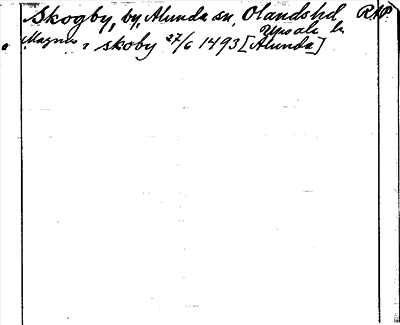 Skogby, by, Alunda sn, Olands hd RAP.
Upsala l.
Magnus i skoby 27/6 1493 [Alunda]